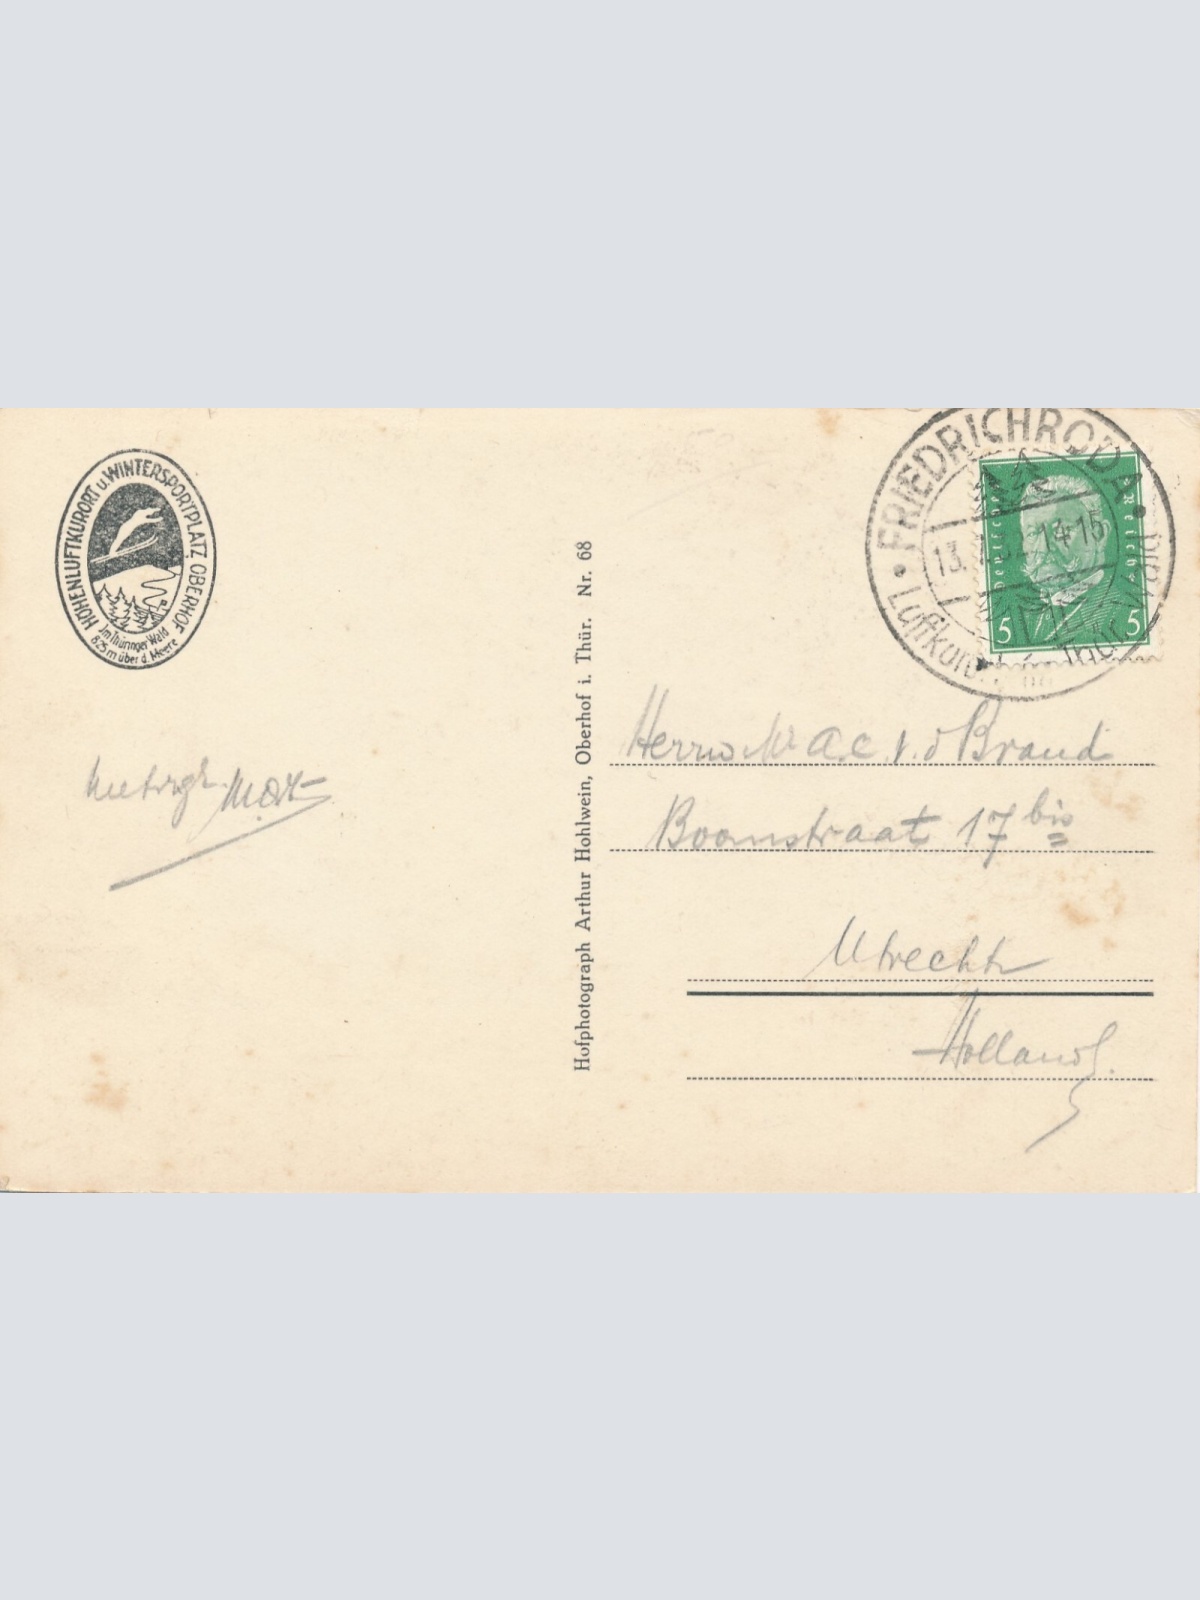 HÖHENLUFTKURORT u. WINTERSPORTPLATZ OBERHOF
Jm Thüringer Wald
825 m über d. Meere
FRIEDRICHRODA
13. 14-15
Luftkurort Thür. Wald
Deutsches Reich
5 5
Hofphotograph Arthur Hohlwein, Oberhof i. Thür. Nr. 68
Herrn Mr A.C. v. d Brand
Boomstraat 17 bis
Utrecht
Holland.